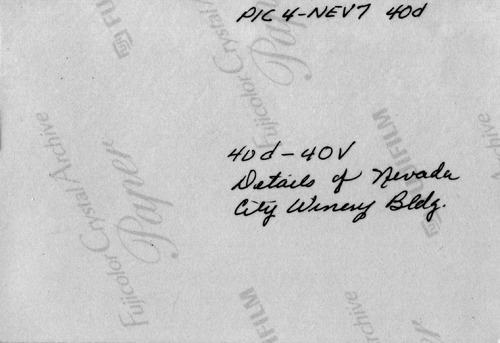 PIC 4-NEV7 40d
FUJIFILM
Fujicolor Crystal Archive
Paper
40d-40V
Details of Nevada
City Winery Bldg.
Fujicolor Crystal Archive
Paper
FUJIFILM
FUJIFILM
Archive
Paper